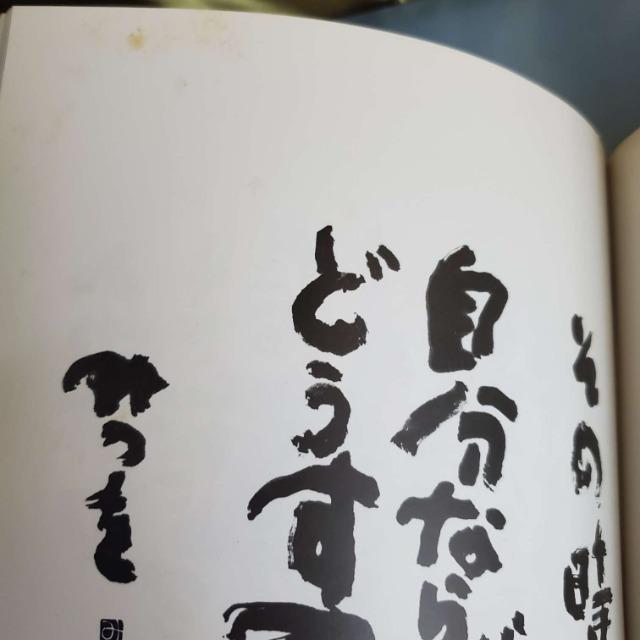 その時
自分なら
どうする
みつを